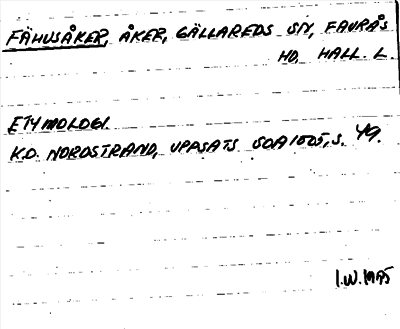 FÄHUSÅKER, ÅKER, GÄLLAREDS SN, FAURÅS
HD, HALL. L.
ETYMOLOGI.
K.D. NORDSTRAND, UPPSATS SOA 1505, S. 49.
I.W. 1975